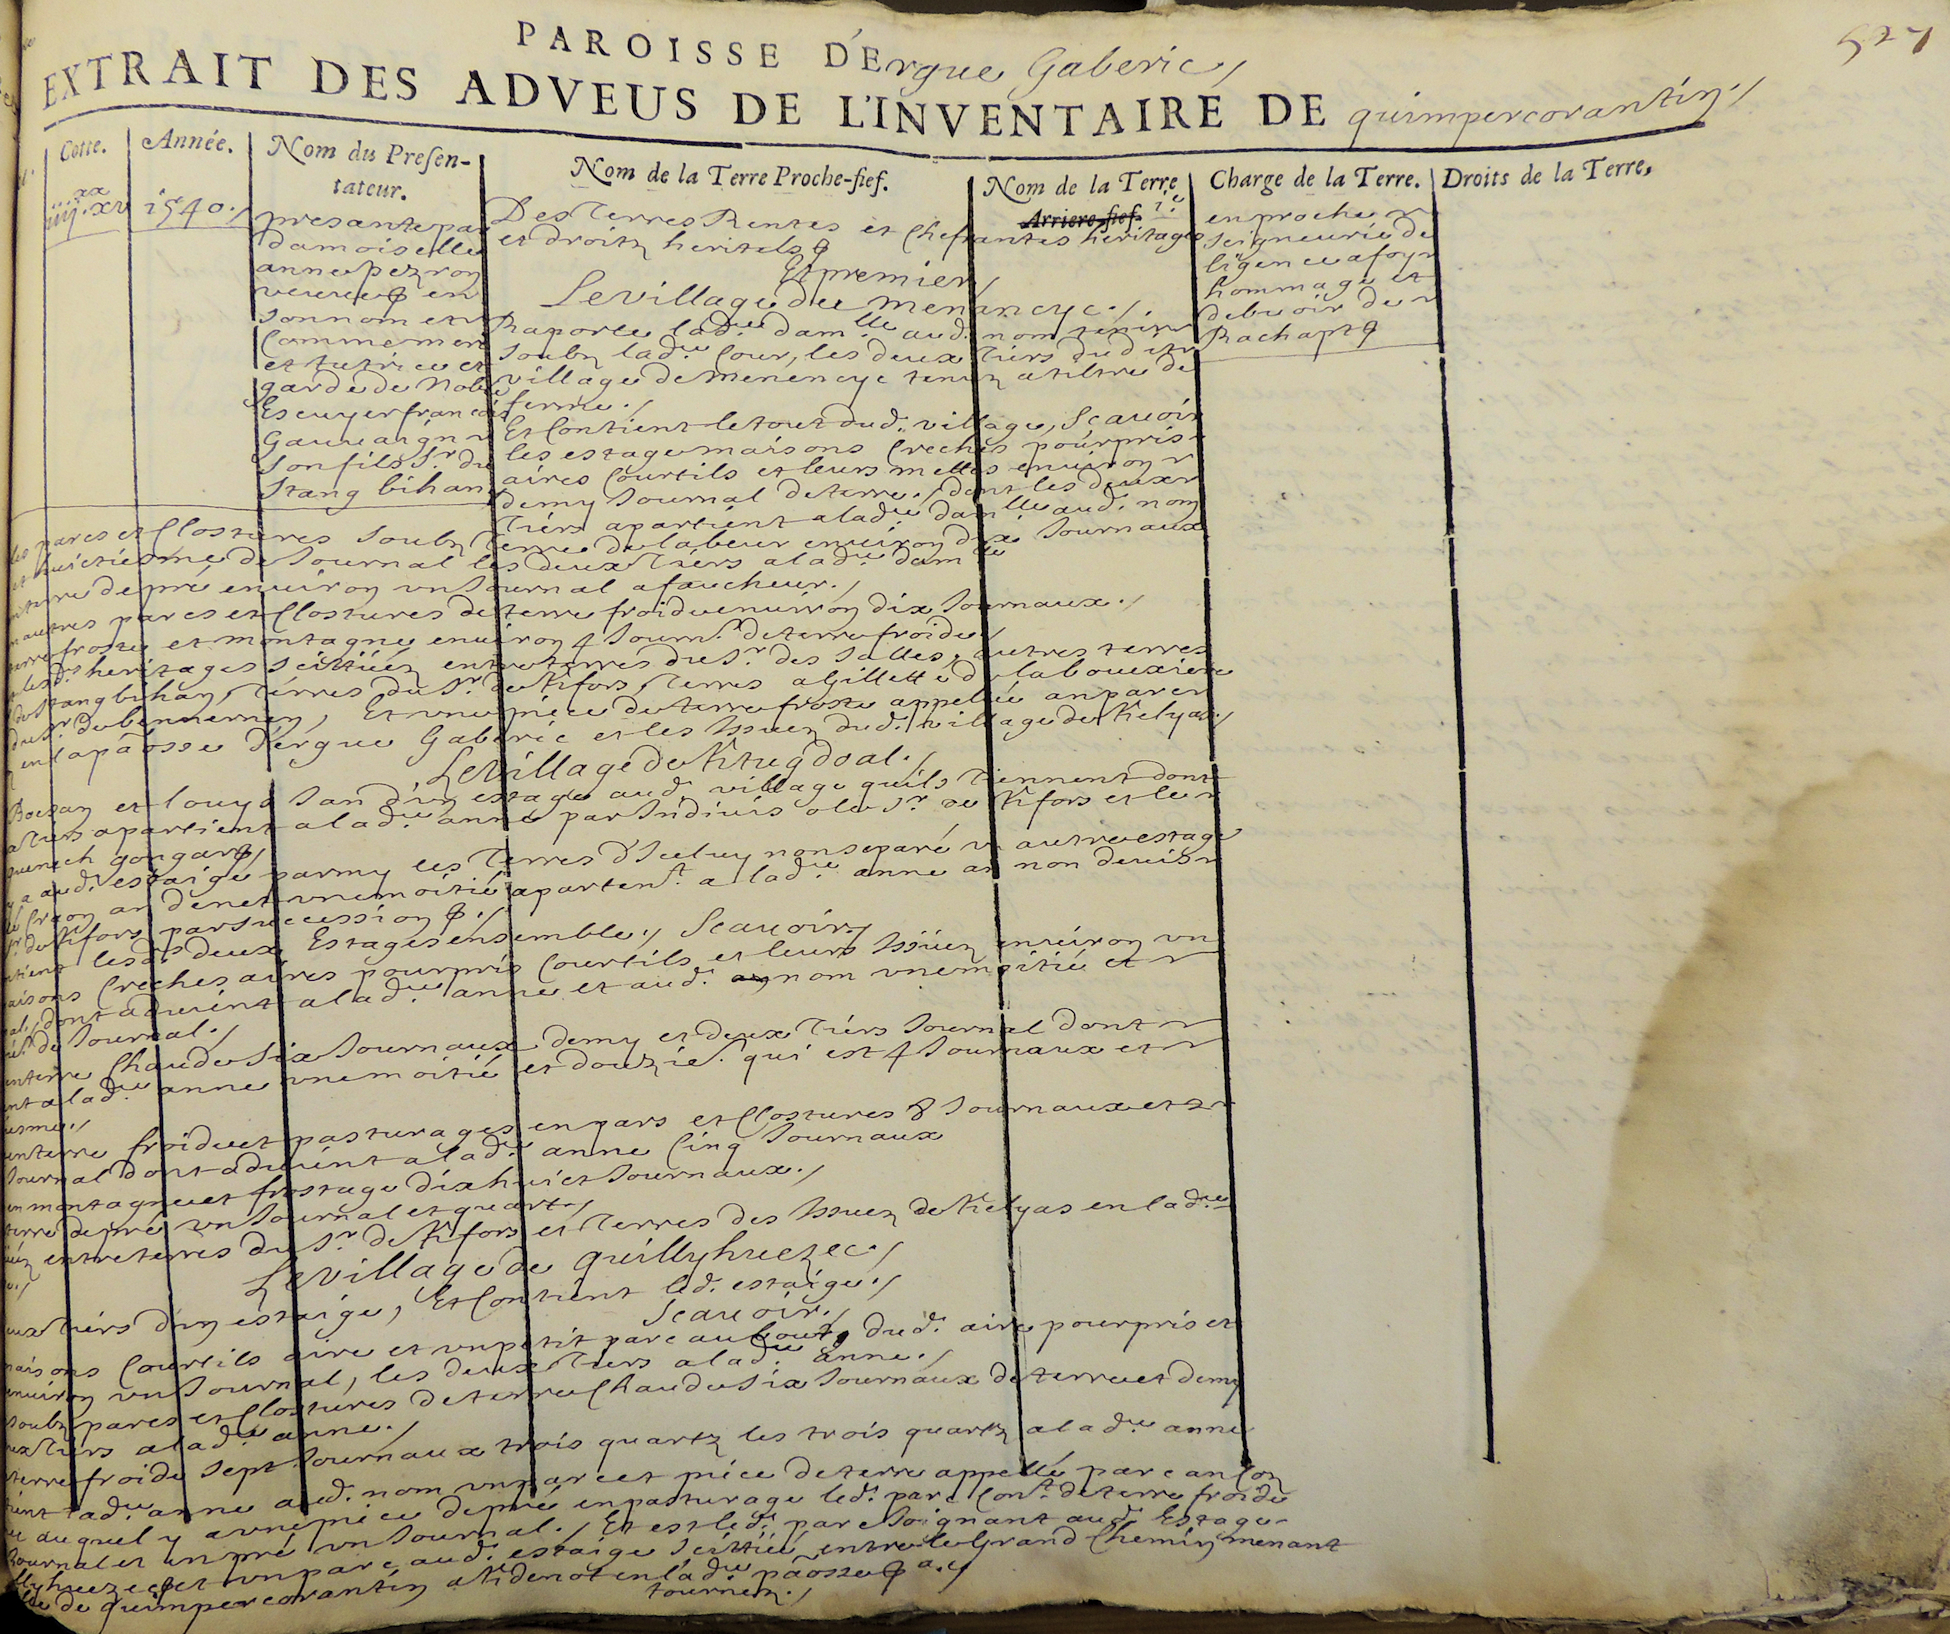 527
PAROISSE D'Ergue Gaberic /
EXTRAIT DES ADVEUS DE L'INVENTAIRE DE quimpercorantin. /
Cotte.
Année.
Nom du Presen-
tateur.
Nom de la Terre Proche-fief.
Nom de la Terre
Arriere-fief.
Charge de la Terre.
Droits de la Terre,
iiij.xx xv
1540. /
presante par
damoiselle
anne pezron
veuve en
son nom et
Comme mere
et tutrice et
garde de Noble
Escuyer francois
Gauvaign
son fils Sr. du
Stang bihan
en proche
seigneurie de
ligence a foy
hommage et
debvoir de
Rachapt
Des Terres Rentes et Cheffrantes heritages
et droitz heritels
Et premier /
Le village du Menezncyc. /
Raporte lad.e dam.lle aud. nom tenir
soubz lad.e Cour, les deux tiers dud
village de Menencyc tenu a tiltre de
ferme. /
Et Contient le tout dud. village, Scavoir
les estage maisons Creches pourpris
aires Courtils et leurs mettes environ
demy Journal de terre. / dont les deux
tiers apartient a lad.e dam.lle aud. nom
les parcs et Clostures soubz terre de labeur environ dix Journaux
et huictiesme de Journal les deux tiers a lad.e dam.lle
terre de pré environ un Journal a faucheur. /
autres parcs et Clostures de terre froide environ dix Journaux. /
terre froste et montagne environ 4 Journ. de terre froide /
lesd. heritages scittüéz entre terres du Sr. des salles, autres terres
du Stang bihan, Terres du Sr. de Kfors, Terres a Gillette de la bouexiere
du Sr. de , Et une piece de terre froste appellée an parc
en la paôsse d'ergue Gaberic et les Issuez dud. village de Kelyas. /
Le Village de Ktugdoal. /
et louys Jan d'un estage aud. village quils tiennent dont
tiers apartient a lad.e anne par Indivis o le Sr. de Kfors et le
quenech gongar /
y a aud. estaige parmy les Terres d'Iceluy non separé un autre estage
an denet une moitié aparten.t a lad.e anne non devis
Sr. de Kfors par succession. /
Contient lesd. deux Estages ensemble, Scavoir /
maisons Creches aires pourpris Courtils et leurs Issüez environ un
dont advient a lad.e anne et aud. nom une moitié et
de Journal. /
en terre Chaude six Journaux demy et deux tiers Journal dont
advient a lad.e anne une moitié et douzie. qui est 4 Journaux et
en terre froide et pasturages en parcs et Clostures 8 Journaux et
Journal dont advient a lad.e anne Cinq Journaux
en montagne et frostage dix huict Journaux. /
terre de pré un Journal et quart. /
entre terres du Sr. de Kfors et Terres des Issuez de Kelyas en lad.e
Le village de quillyhuezec. /
deux tiers d'un estaige, Et Contient led. estaige. /
Scavoir. /
maisons Courtils aire et un petit parc au bout dud. aire pourpris et
environ un Journal, les deux tiers a lad.e anne. /
soubz parcs et Clostures de terre Chaude six Journaux de terre et demy
deux tiers a lad.e anne. /
terre froide sept Journaux trois quartz les trois quartz a lad.e anne
tient lad.e anne aud. nom un parc et piece de terre appellé parc an
auquel y a une piece de pré en pasturage led. parc Con.t de terre froide
Journal et un pré un Journal. / Et est led. parc Joignant aud. Estage
et un parc aud. estaige scittüé entre le Grand Chemin menant
de quimpercorantin a Kdenot en lad.e paôsse
tournez. /